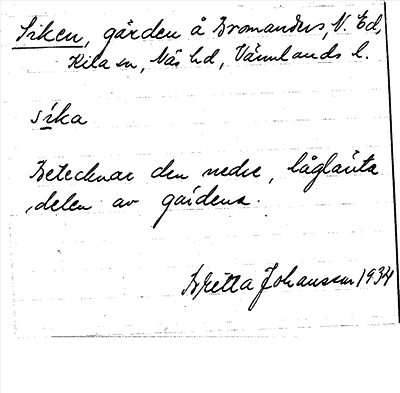 Siken, gården å Bromanders, N. Ed,
Kila sn, Näs hd, Värmlands l.
sika
Betecknar den nedre, låglänta
delen av gårdena.
Britta Johansson 1934